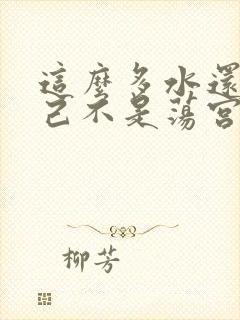 這麼多水還
己不是蕩宮
柳芳